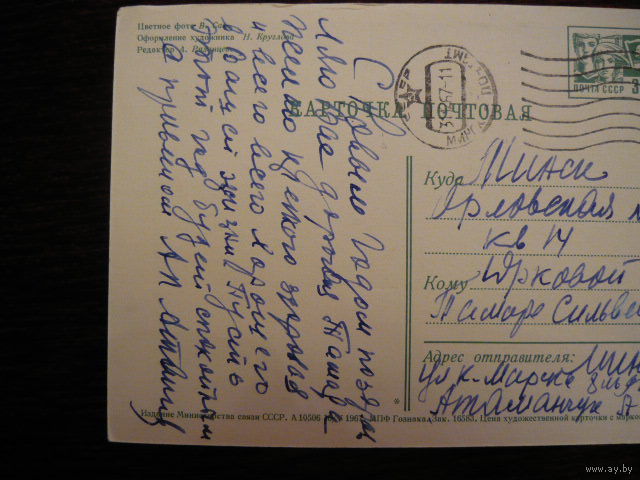 Цветное фото В.
Оформление художника Н. Круглова
Редактор А.
КАРТОЧКА ПОЧТОВАЯ
ПОЧТА СССР
СССР
МИНСК
С Новым Годом позд
ляю Вас дорогая Тамара
Желаю крепкого здоровья
и всего всего хорошего
в Вашей жизни Пусть
этот год будет спокойным
За приветом Ап Атаманчук
Куда Минск
Орловская
кв 14
Кому Юрковой
Тамаре Сильве
Адрес отправителя: Мин
ул К-Маркса
Атаманчук А
Издание Министерства связи СССР. А 10506 1967 МПФ Гознака. Зак. 16583. Цена художественной карточки с марко
www.ay.by